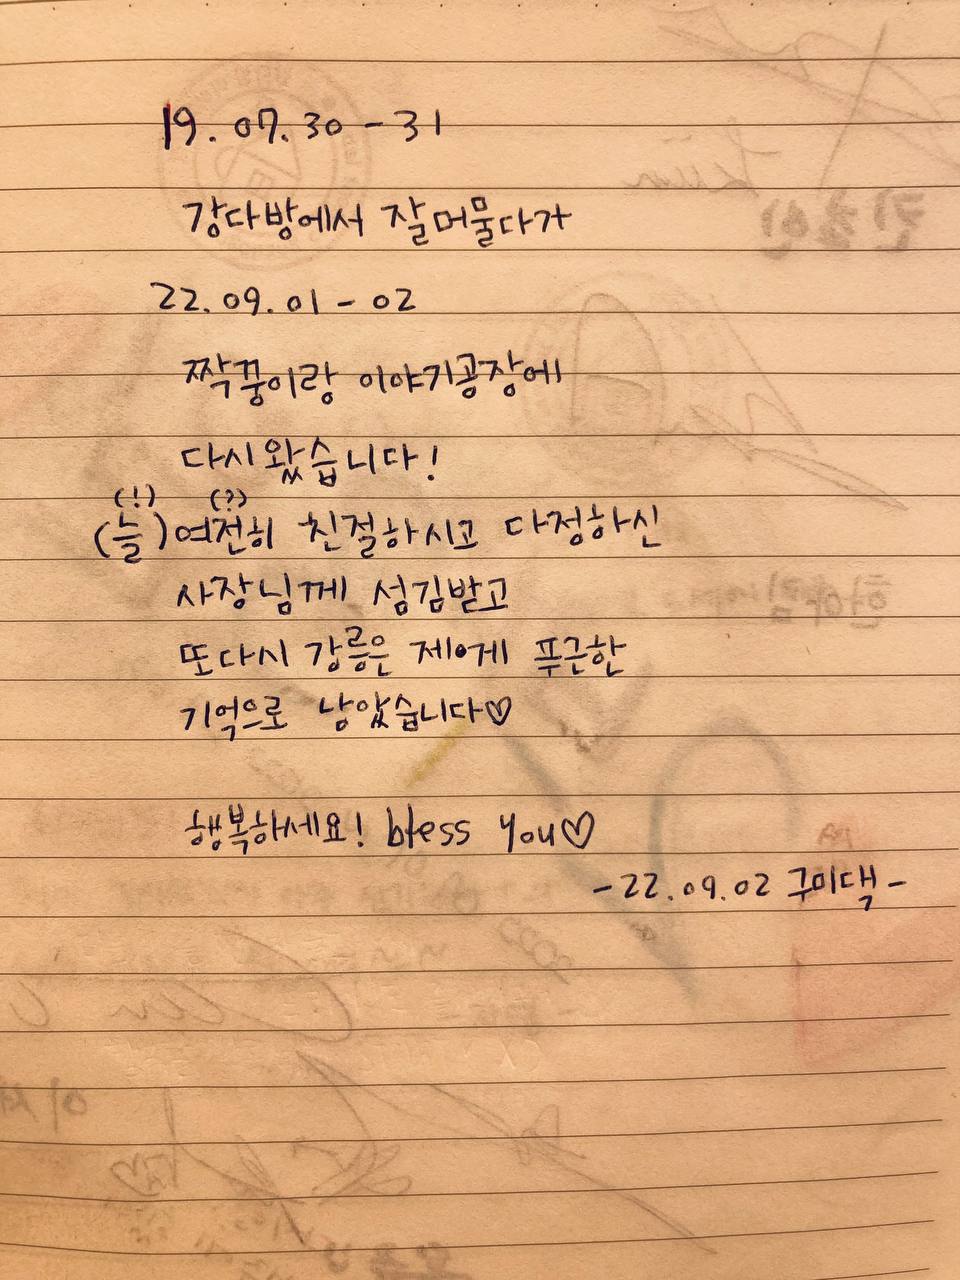 19. 07. 30 - 31
강다방에서 잘 머물다가
22. 09. 01 - 02
짝꿍이랑 이야기공장에
다시 왔습니다!
(!) (?)
(늘) 여전히 친절하시고 다정하신
사장님께 섬김받고
또다시 강릉은 제에게 푸근한
기억으로 남았습니다♡
행복하세요! bless you♡
- 22. 09. 02 구미댁 -